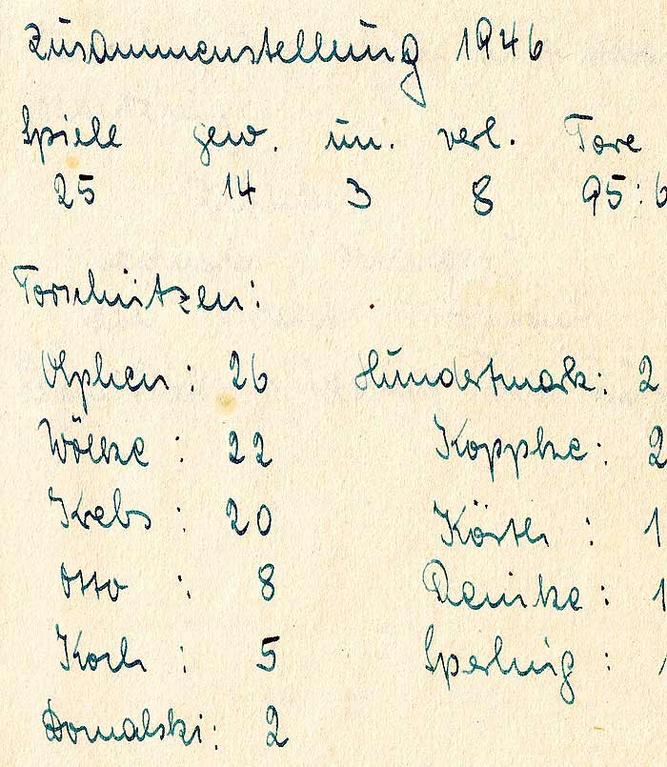 Zusammenstellung 1946
Spiele gew. un. verl. Tore
25 14 3 8 95:6
Torschützen:
Olphen: 26 Hundertmark: 2
Wölke: 22 Koppke: 2
Krebs: 20 : 1
Otto: 8 : 1
Koch: 5 Sperling:
Domalski: 2